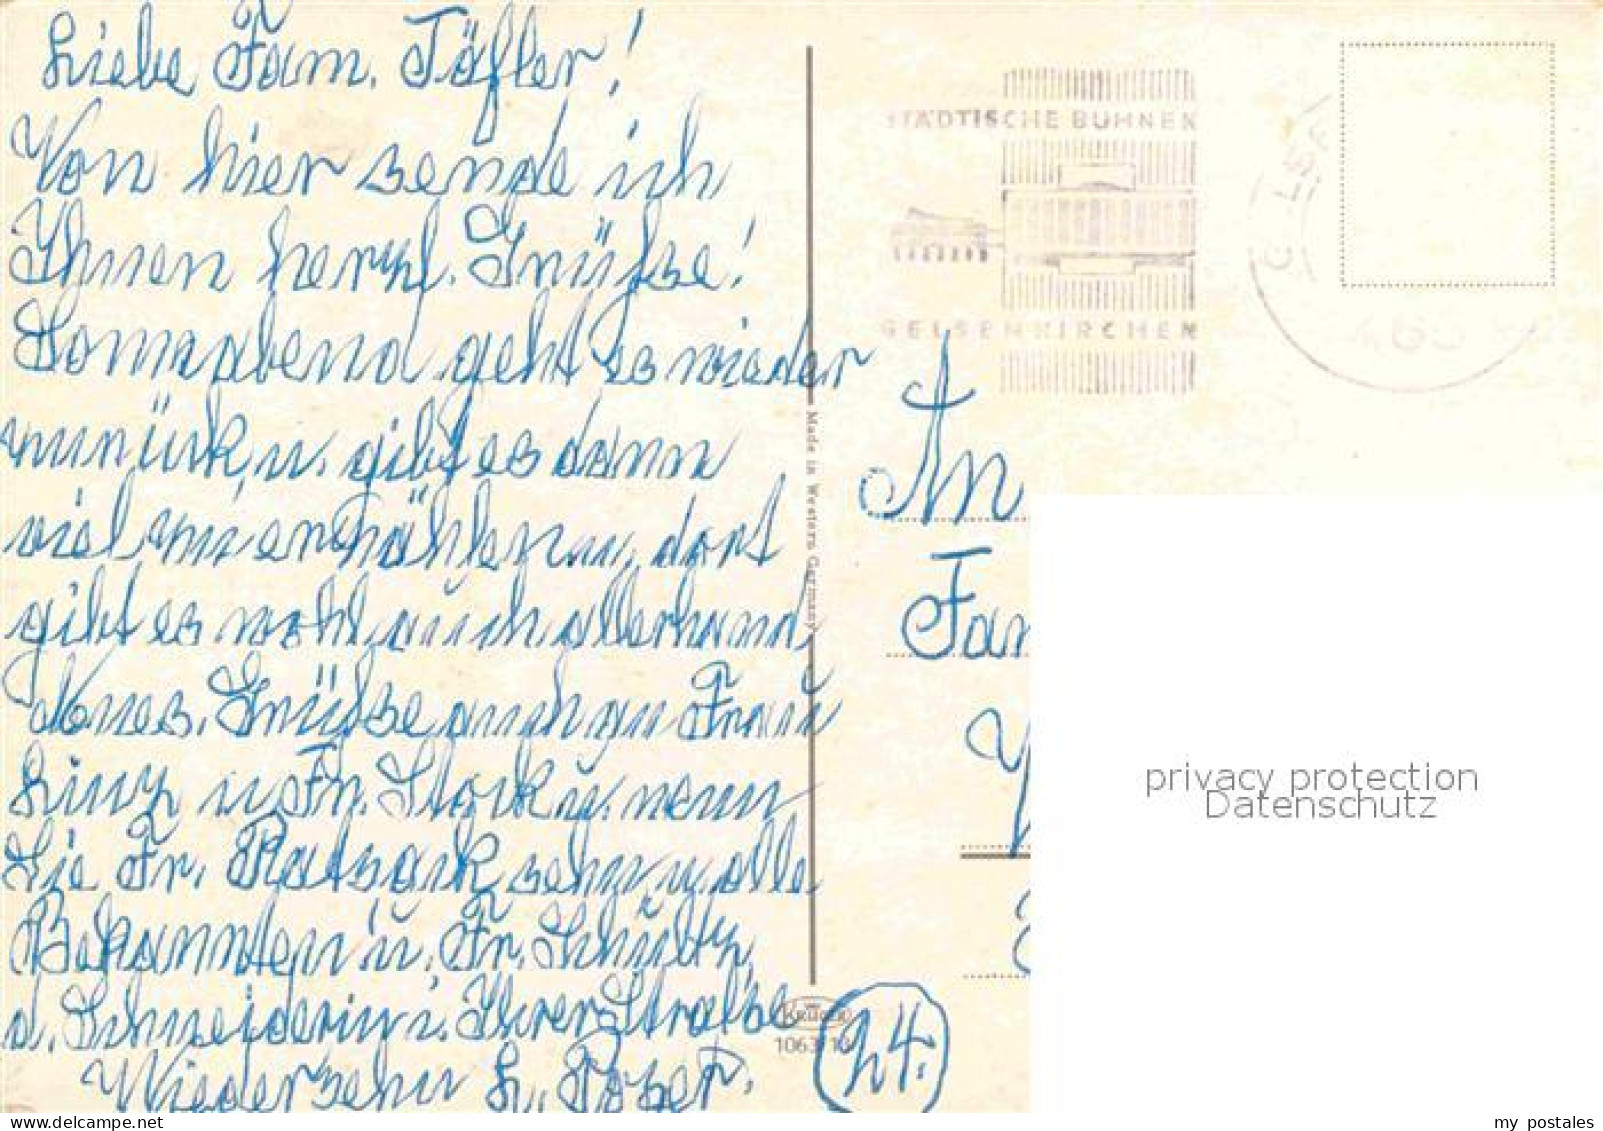 Liebe Fam. Töfler!
Von hier sende ich
Ihnen herzl. Grüße!
Sonnabend geht es wieder
zurück, u. gibt es dann
viel zu erzählen u. dort
gibt es wohl auch allerhand
Neues. Grüße auch an Frau
Linz u. Fr. Stock u. wenn
Sie Fr. Ratsack sehn u. alle
Bekannten u. Fr. Schultz,
d. Schneiderin i. Ihrer Straße
Wiedersehn L.
24.
STÄDTISCHE BÜHNEN
GELSENKIRCHEN
Made in Western Germany
KRÜGER
1063/10
An
Fam
privacy protection
Datenschutz
my postales